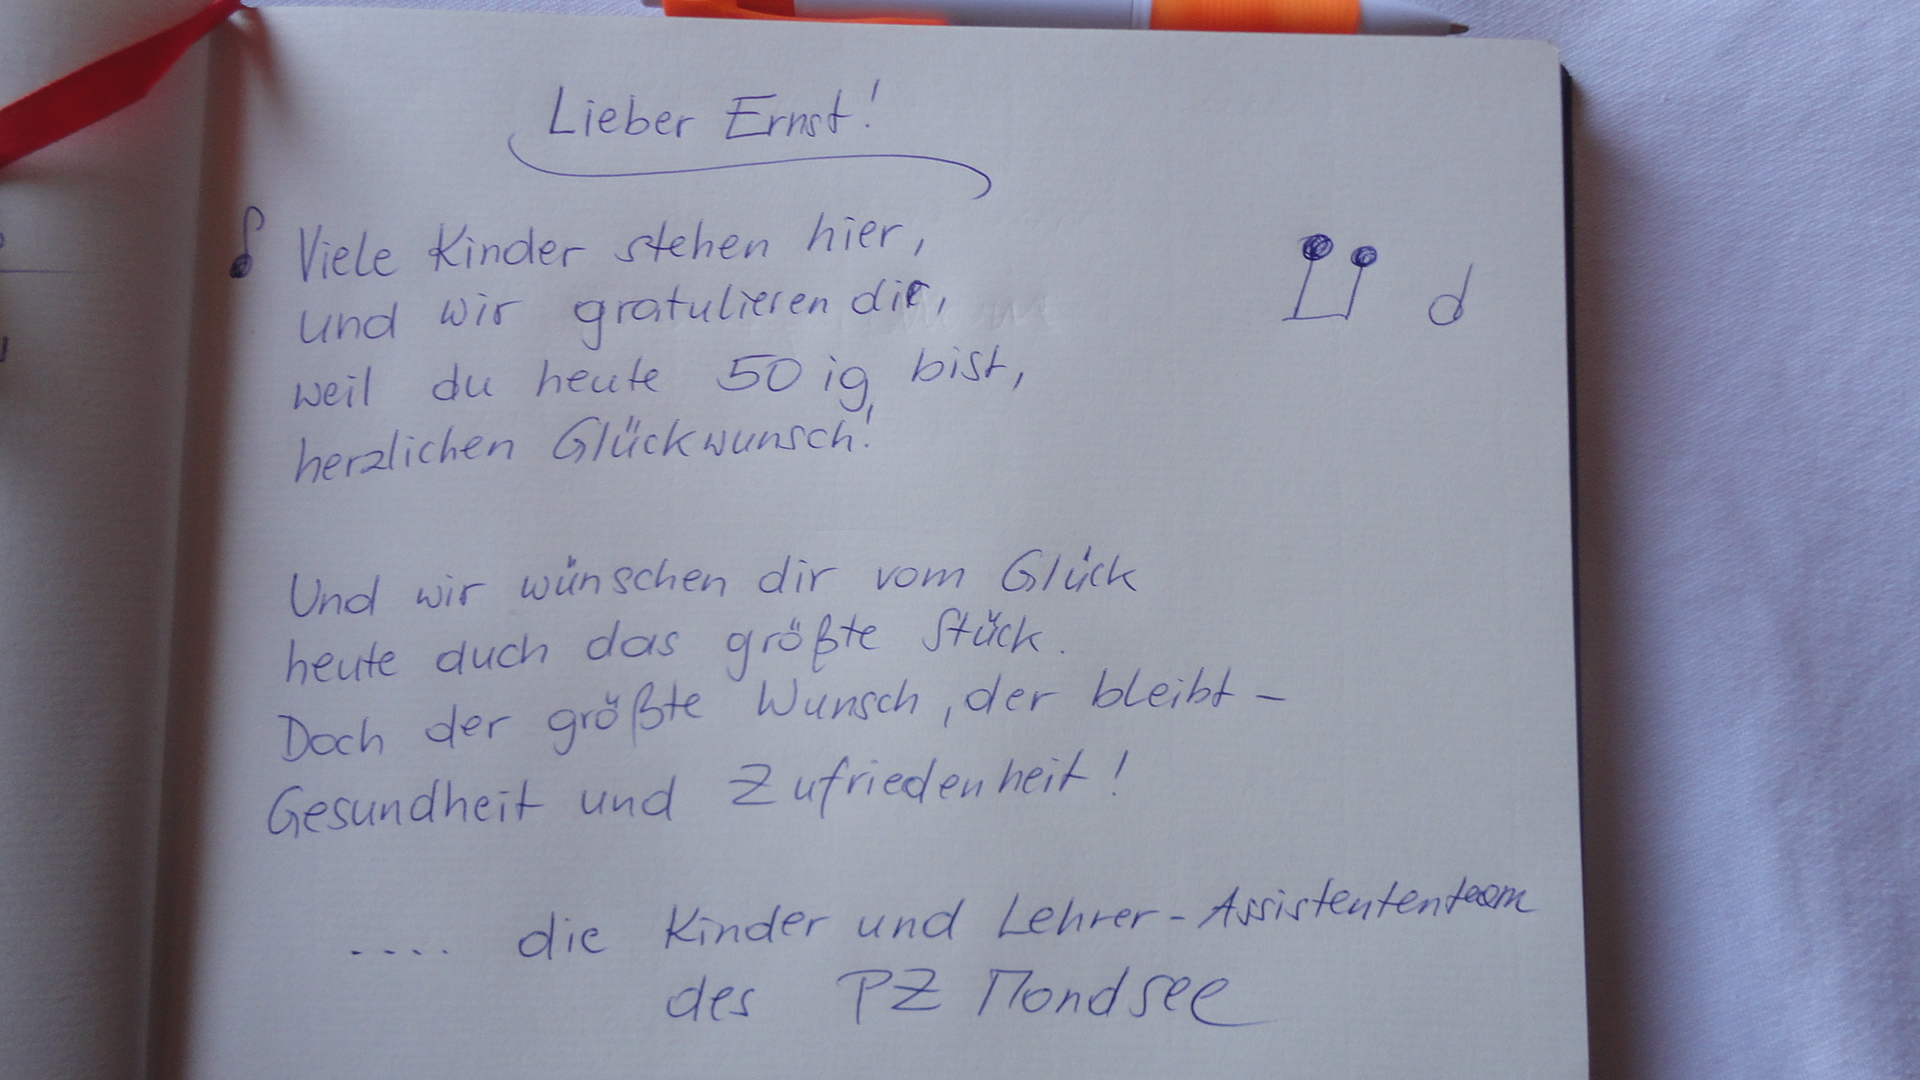 Lieber Ernst!
Viele Kinder stehen hier,
und wir gratulieren dir,
weil du heute 50ig bist,
herzlichen Glückwunsch!
Und wir wünschen dir vom Glück
heute auch das größte Stück.
Doch der größte Wunsch, der bleibt –
Gesundheit und Zufriedenheit!
.... die Kinder und Lehrer-Assistententeam
des PZ Mondsee